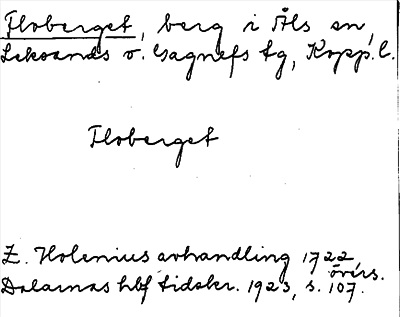 Floberget, berg i Åls sn,
Leksands o. Gagnefs tg, Kopp. l.
Floberget
Z. Holenius avhandling 1722
övers.
Dalarnas hbf tidskr. 1923, s. 107.